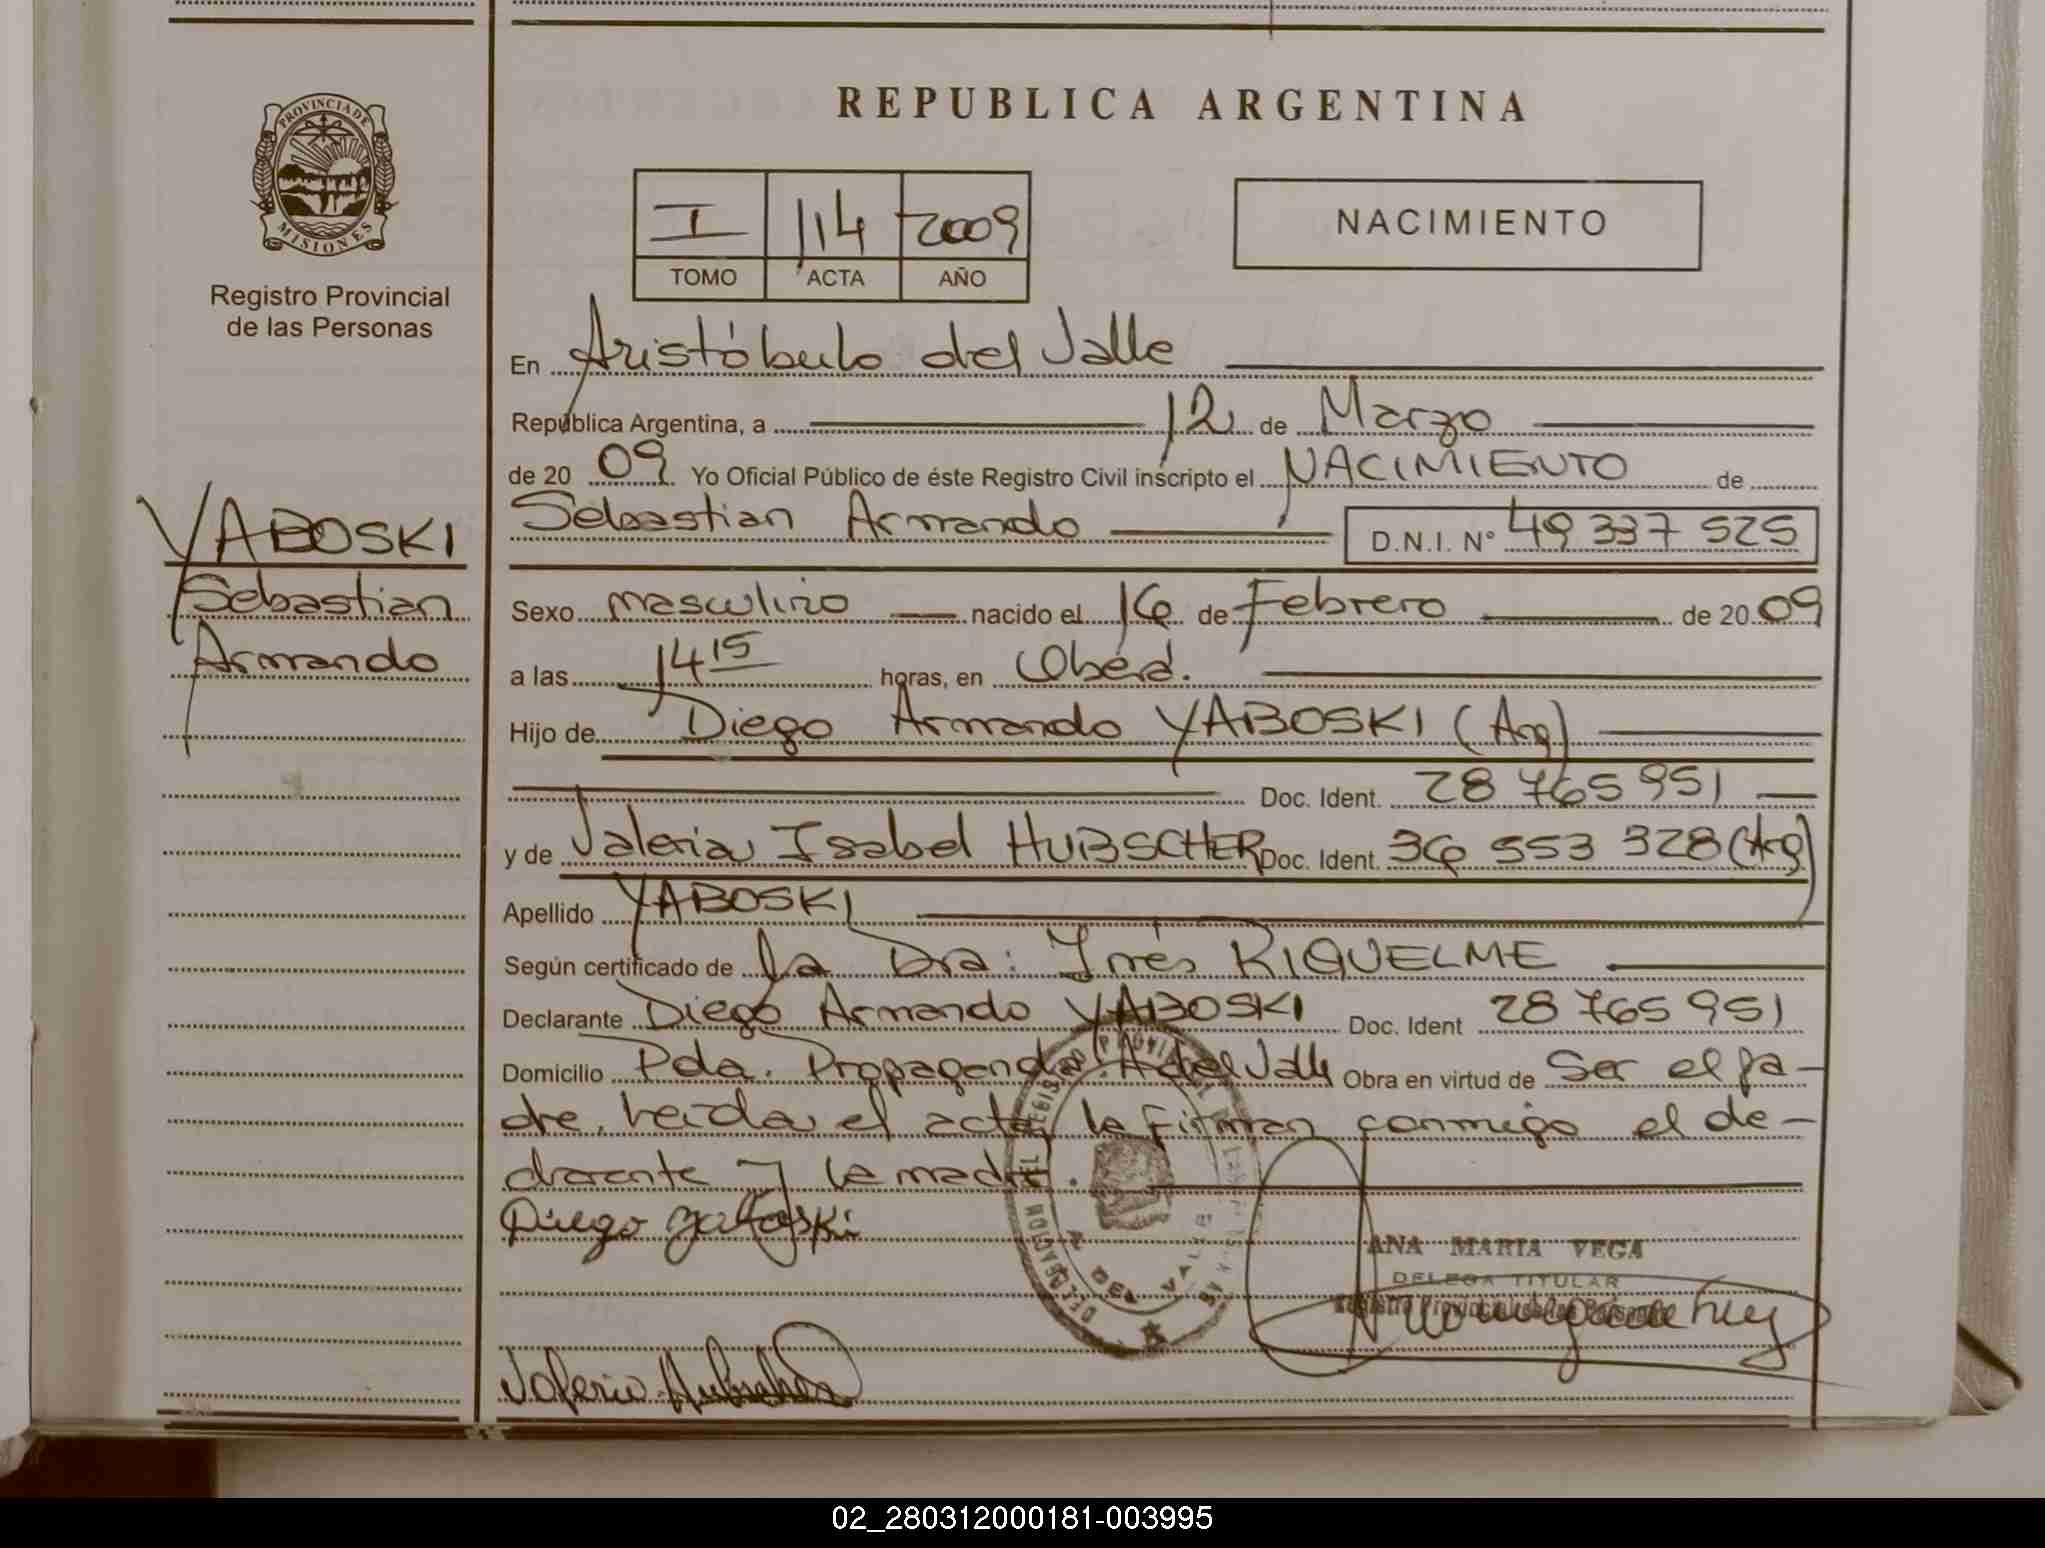 REPUBLICA ARGENTINA
PROVINCIA DE
MISIONES
Registro Provincial
de las Personas
I 114 2009
TOMO ACTA AÑO
NACIMIENTO
En Aristóbulo del Valle
República Argentina, a 12 de Marzo
de 20 09 Yo Oficial Público de éste Registro Civil inscripto el NACIMIENTO de
YABOSKI
Sebastian
Armando
Sebastian Armando D.N.I. N° 49 337 525
Sexo masculino nacido el 16 de Febrero de 20 09
a las 14 15 horas, en Oberá.
Hijo de Diego Armando YABOSKI (Arg)
Doc. Ident. 28 765 951
y de Valeria Isabel HUBSCHER Doc. Ident. 36 553 328 (Arg)
Apellido YABOSKI
Según certificado de la Dra: Inés RIQUELME
Declarante Diego Armando YABOSKI Doc. Ident 28 765 951
Domicilio Pda. Propaganda. A del Valle Obra en virtud de Ser el pa-
dre. Leída el acta la firman conmigo el de-
clarante y la madre.
Diego Yaboski
ANA MARIA VEGA
DELEGA TITULAR
Registro Provincial de las Personas
Valeria Hubscher
02_280312000181-003995